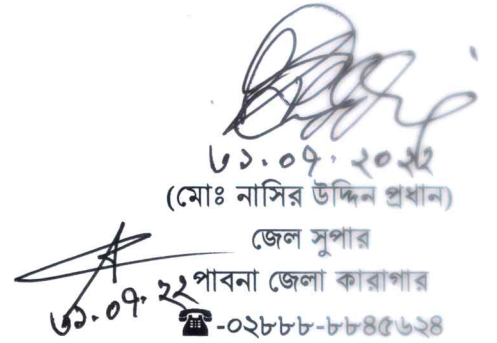 ৩১.০৭.২০২২
(মোঃ নাসির উদ্দিন প্রধান)
জেল সুপার
পাবনা জেলা কারাগার
৩১.০৭.২২
☎-০২৮৮৮-৮৮৪৫৬২৪